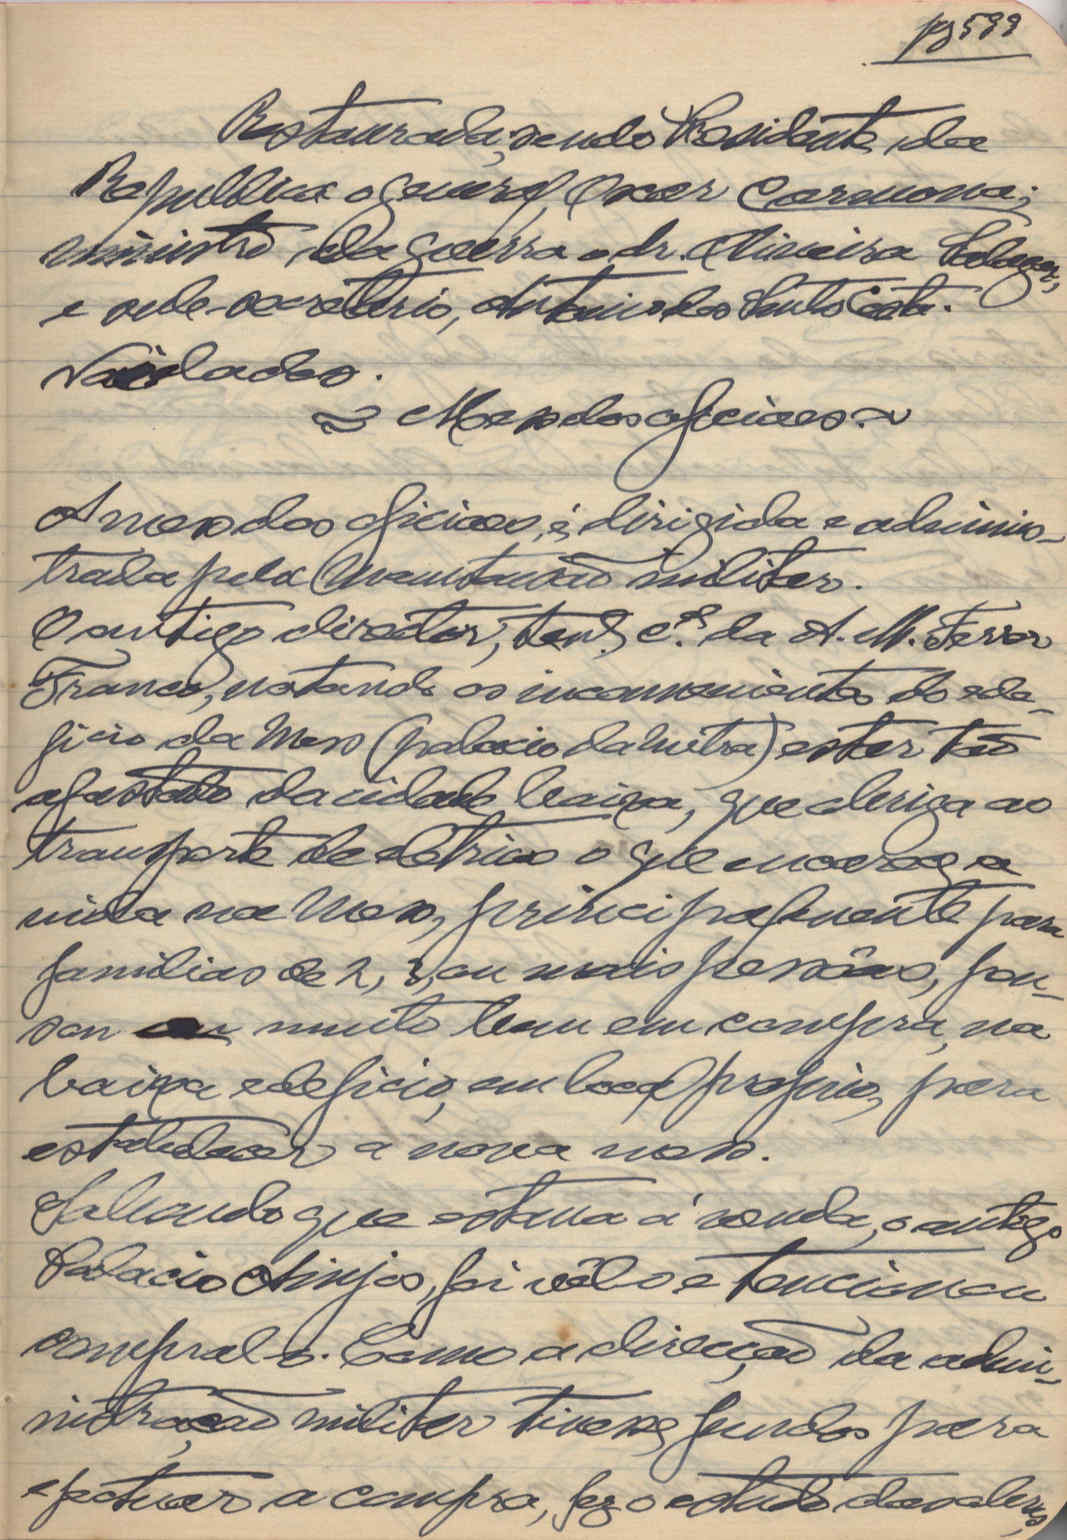 pg 599
Restaurada, sendo Presidente da
Republica o general Oscar Carmona;
ministro da guerra o dr. Oliveira Salazar,
e sub-secretario, Antonio dos Santos Costa.
Vaidades.
Mess dos oficiaes.
A mess dos oficiaes, é dirigida e adminis-
trada pela Manutenção militar.
O antigo director, tent. c.el da A. M. Ferrer
Franco, notando os inconvenientes do ede-
ficio da Mess (palacio da Mitra) estar tão
afastado da cidade baixa, que obriga ao
transporte de eletricos o que encarece a
vida na Mess, principalmente para
familias de 2, 3, ou mais pessôas, pen-
sou muito bem em compra, na
baixa edeficio, em local proprio, para
estabelecer a nova mess.
Sabendo que estava á venda, o antigo
Palacio Anjos, foi vêl-o e tencionou
compral-o. Como a direcção da admi-
nistração militar tivesse fundos para
efectuar a compra, fez o estudo dos valores,